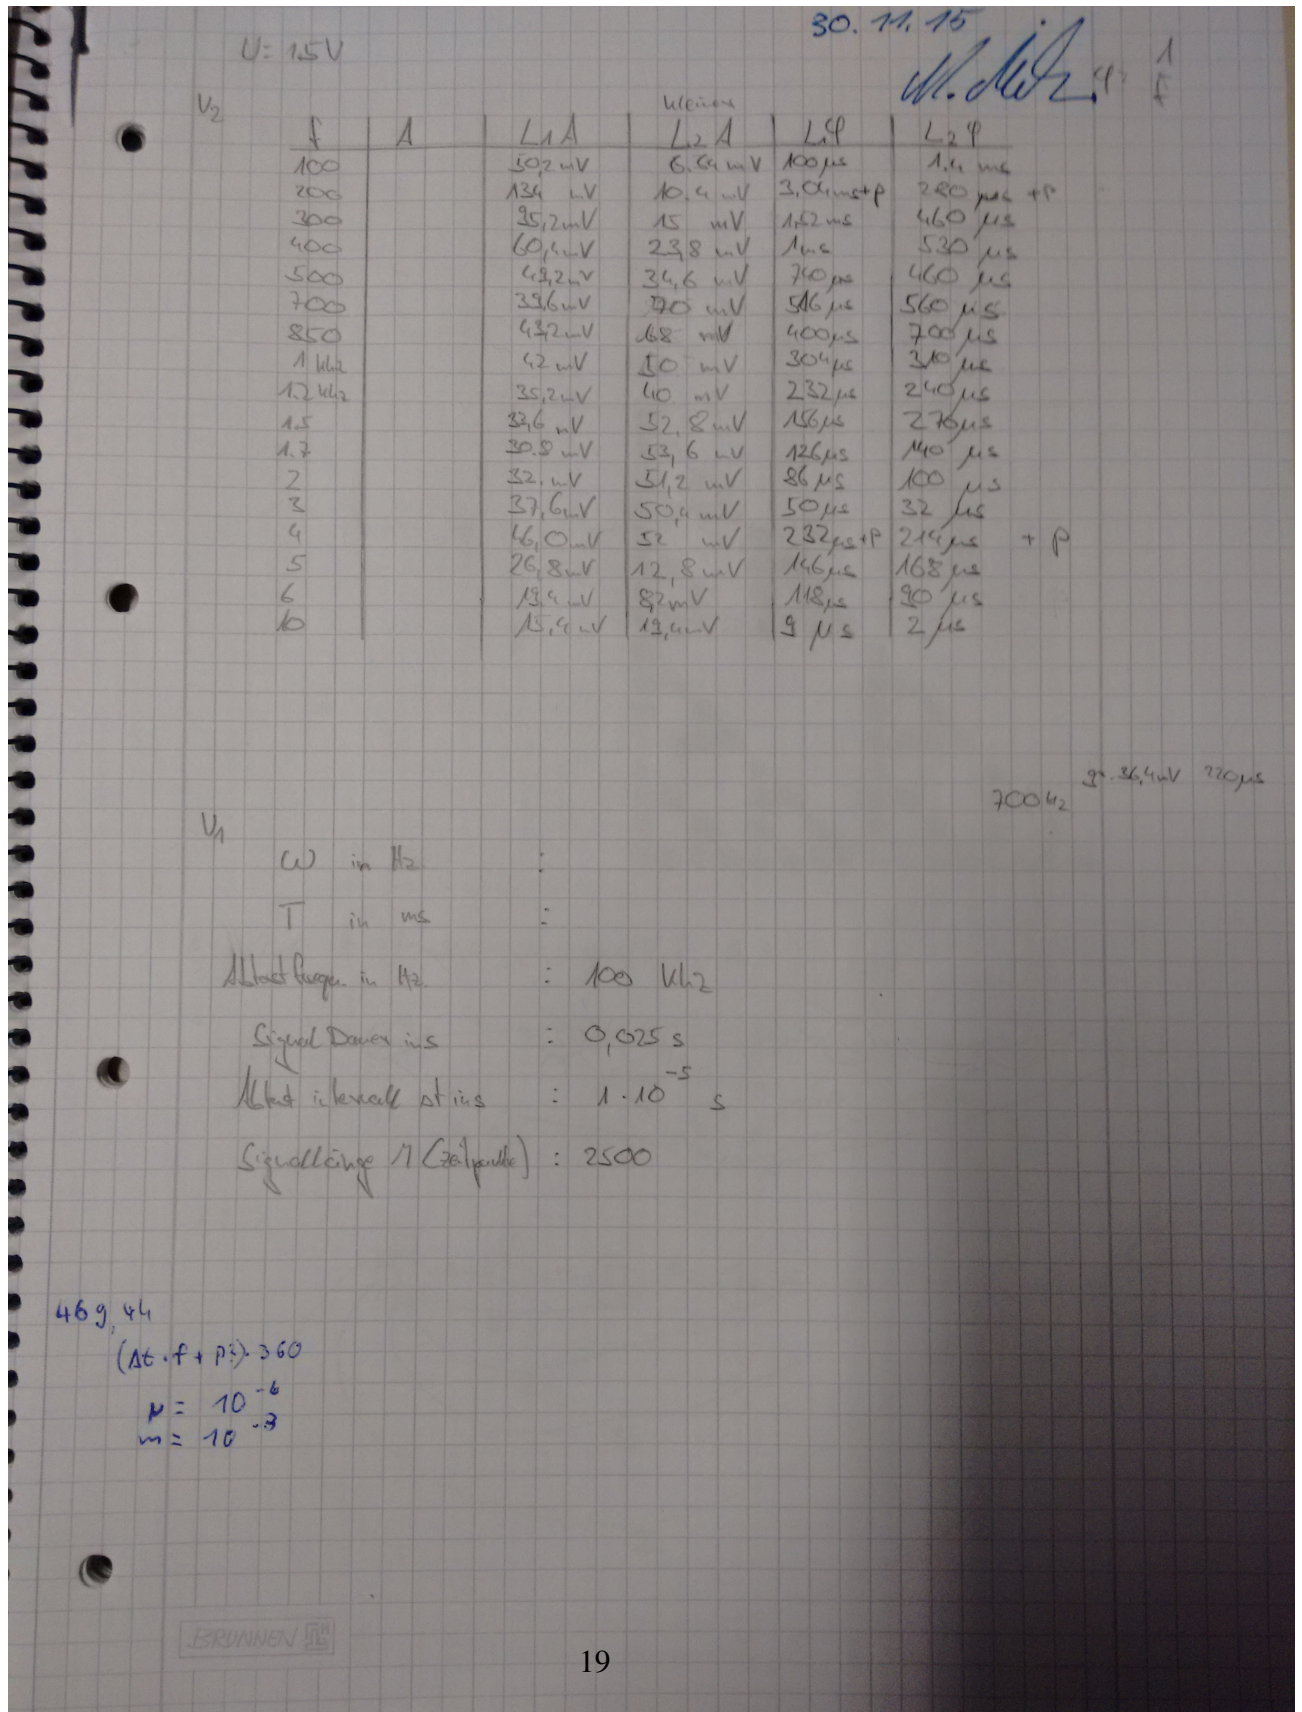 30. 11. 15
U = 1.5 V
V2 kleiner
f A L1 A L2 A L1 φ L2 φ
100 50,2 mV 6.64 mV 100 µs 1.4 ms
200 134 mV 10.4 mV 3,04 ms + P 280 µs + P
300 95,2 mV 15 mV 1,52 ms 460 µs
400 60,4 mV 23,8 mV 1 ms 530 µs
500 49,2 mV 34,6 mV 740 µs 460 µs
700 39,6 mV 70 mV 516 µs 560 µs
850 43,2 mV 68 mV 400 µs 700 µs
1 khz 42 mV 50 mV 304 µs 310 µs
1.2 khz 35,2 mV 40 mV 232 µs 240 µs
1.5 33,6 mV 52,8 mV 156 µs 276 µs
1.7 30.8 mV 53,6 mV 126 µs 140 µs
2 32. mV 51,2 mV 86 µs 100 µs
3 37,6 mV 50,4 mV 50 µs 32 µs
4 46,0 mV 52 mV 232 µs + P 214 µs + P
5 26,8 mV 12,8 mV 146 µs 168 µs
6 19,4 mV 8,2 mV 118 µs 90 µs
10 15,4 mV 19,4 mV 9 µs 2 µs
700 hz 36,4 mV 220 µs
V1
ω in Hz :
T in ms :
Abtastfreqen. in Hz : 100 Khz
Signal Dauer in s : 0,025 s
Abtast intervall Δt in s : 1 · 10^-5 s
Signallänge M (Zeitpunkte) : 2500
469,44
(Δt · f + P?) · 360
µ = 10^-6
m = 10^-3
BRUNNEN
19